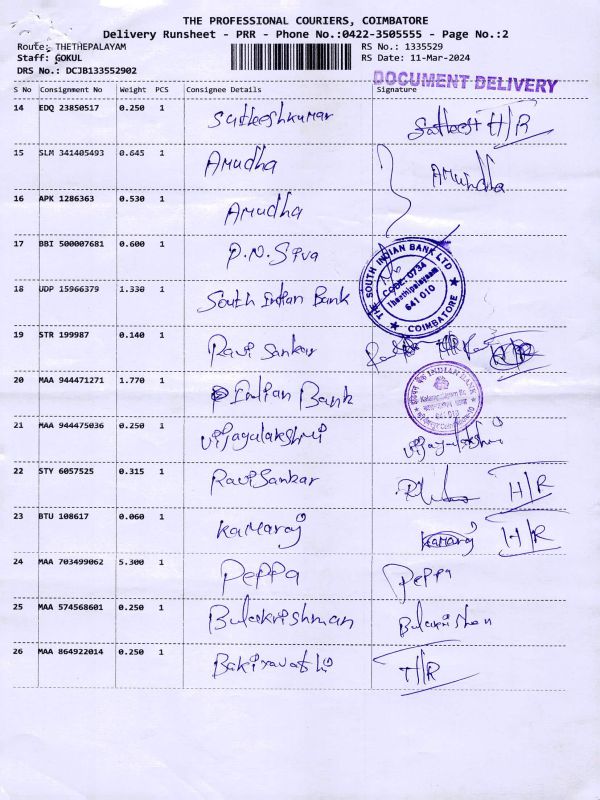 THE PROFESSIONAL COURIERS, COIMBATORE
Delivery Runsheet - PRR - Phone No.:0422-3505555 - Page No.:2
Route: THETHEPALAYAM RS No.: 1335529
Staff: GOKUL RS Date: 11-Mar-2024
DRS No.: DCJB133552902
DOCUMENT DELIVERY
S No Consignment No Weight PCS Consignee Details Signature
14 EDQ 23850517 0.250 1 Satheeshkumar Satheesh H/R
15 SLM 341405493 0.645 1 Amudha Amundha
16 APK 1286363 0.530 1 Amudha
17 BBI 500007681 0.600 1 P.N. Siva
THE SOUTH INDIAN BANK LTD
CODE: 0734
Theethipalayaam
641 010
COIMBATORE
18 UDP 15966379 1.330 1 South Indian Bank
19 STR 199987 0.140 1 Ravi Sankar H/R
20 MAA 944471271 1.770 1 Indian Bank
INDIAN BANK
641 010
21 MAA 944475036 0.250 1 Vijayalakshmi
22 STY 6057525 0.315 1 Ravi Sankar H/R
23 BTU 108617 0.060 1 Kamaraj Kamaraj H/R
24 MAA 703499062 5.300 1 Peppa Peppa
25 MAA 574568601 0.250 1 Balakrishman
26 MAA 864922014 0.250 1 T/R